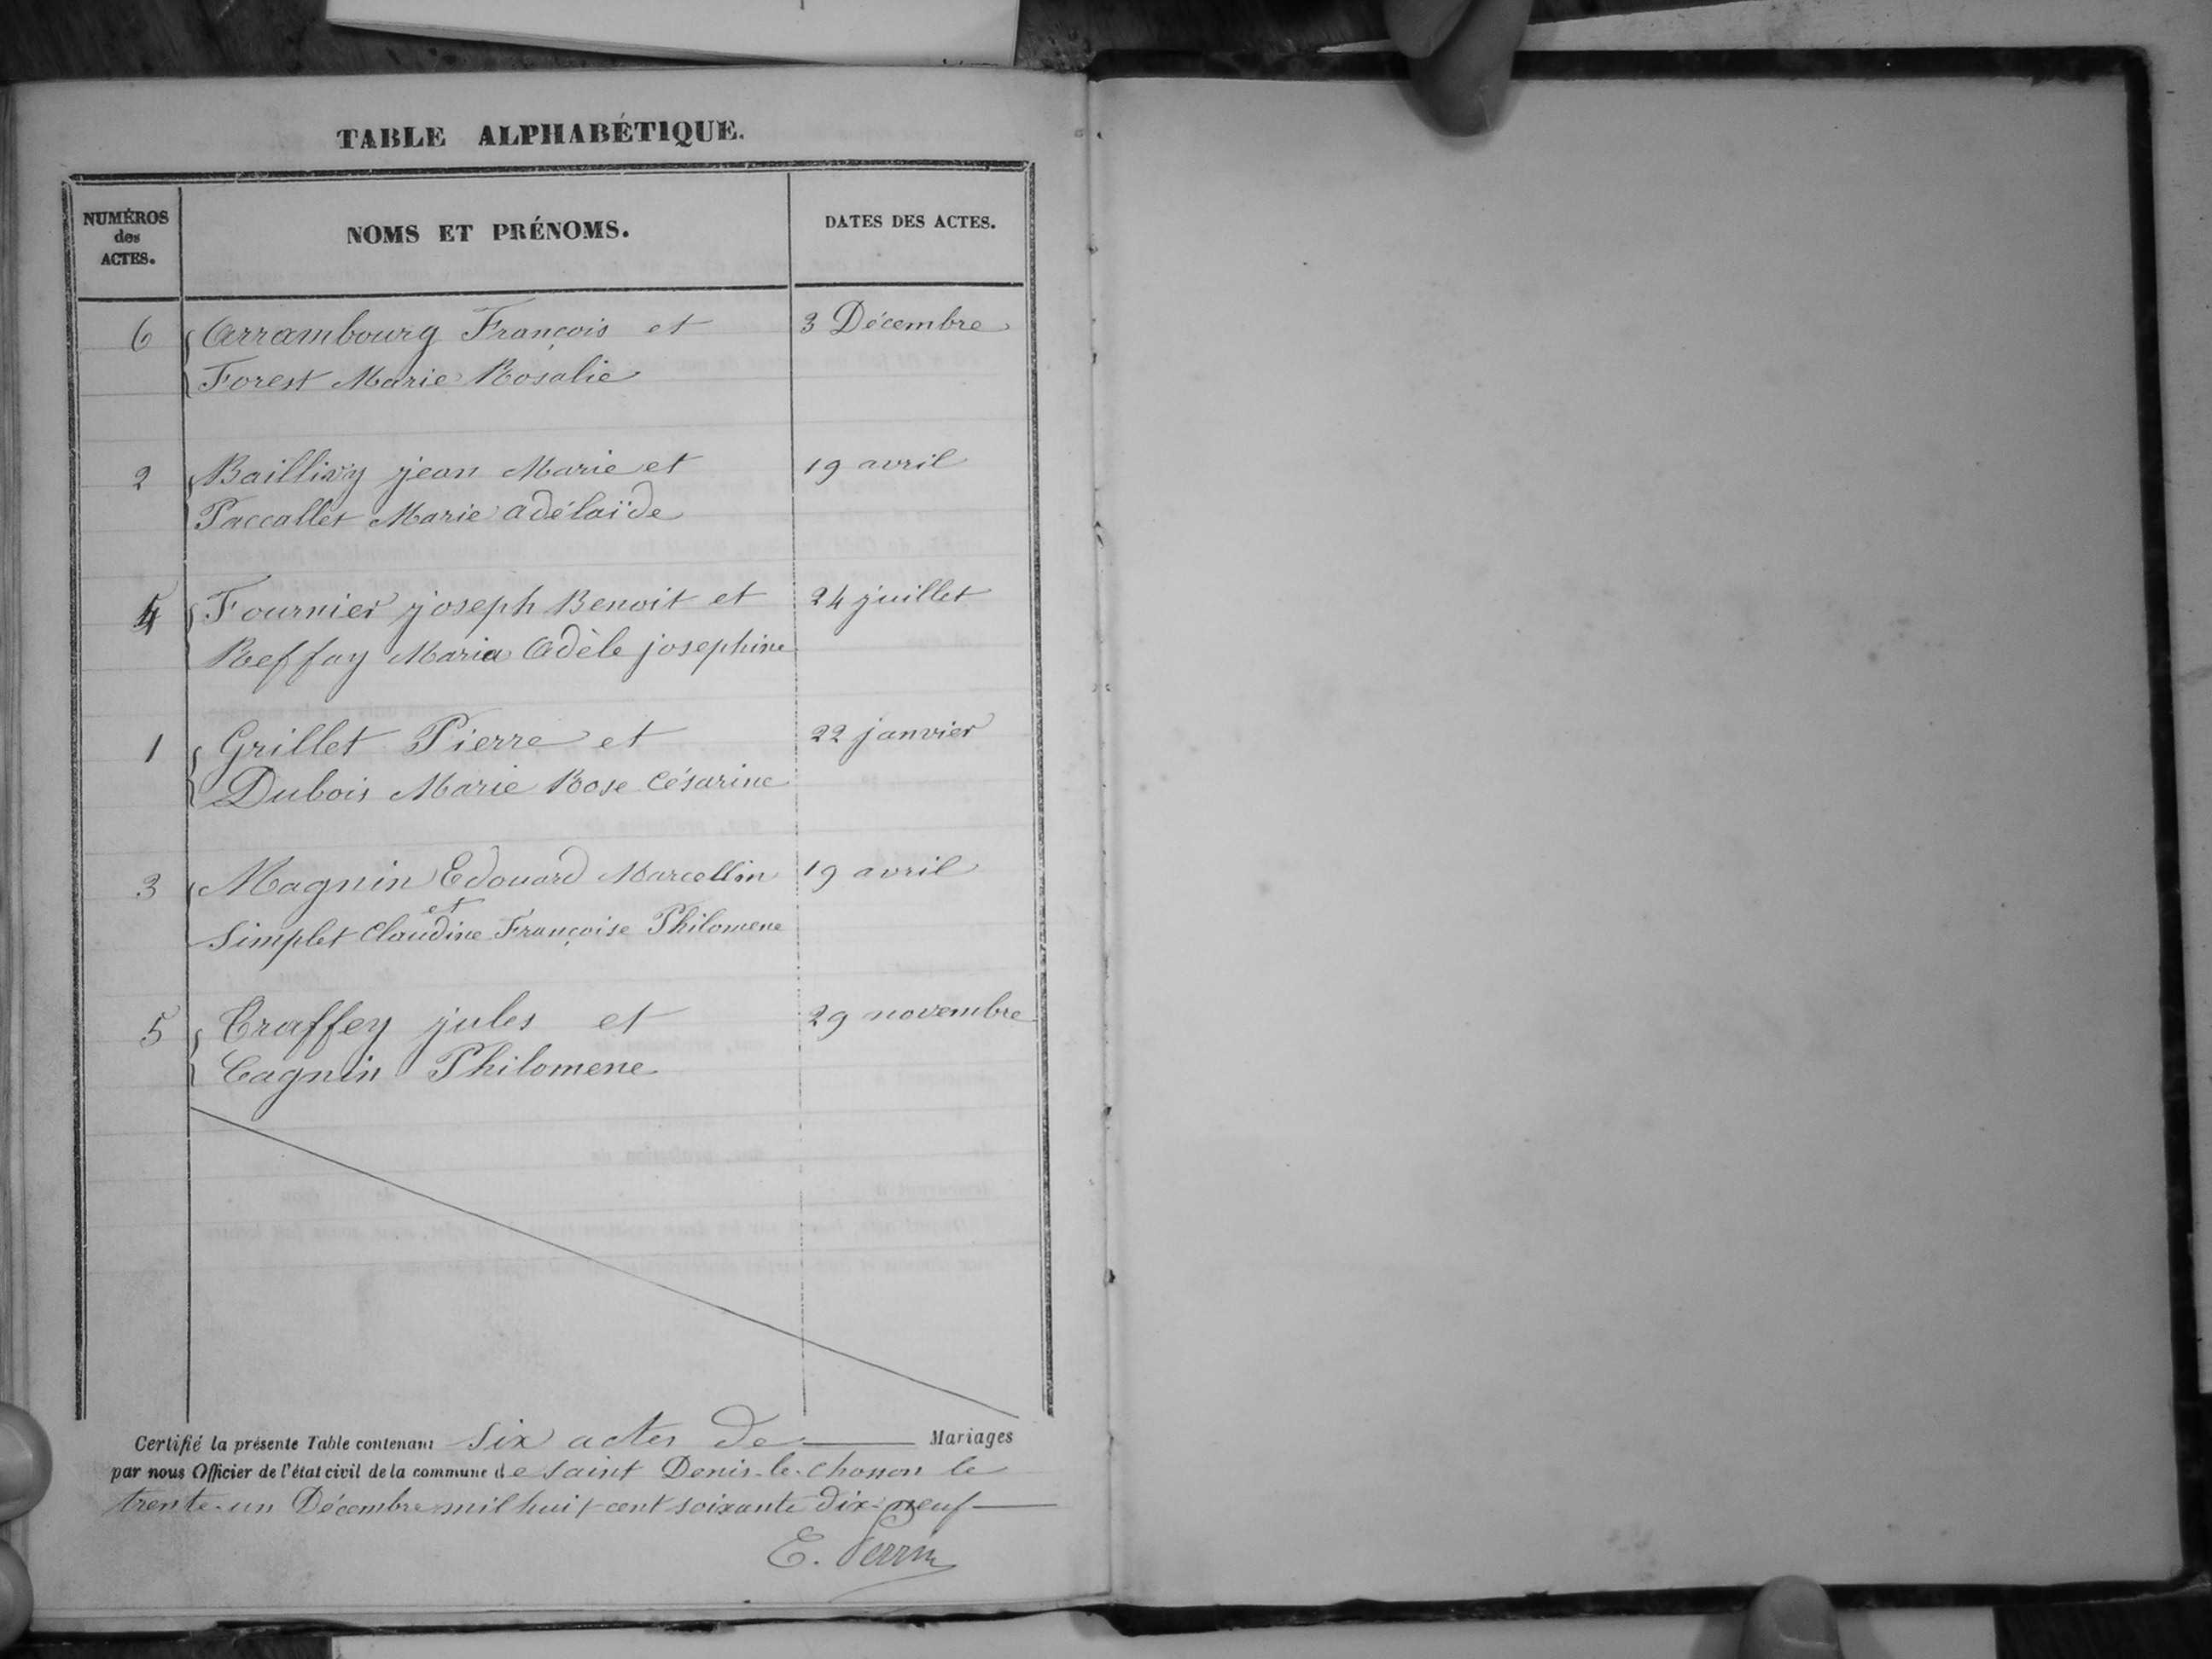 TABLE ALPHABÉTIQUE.
NUMÉROS
des
ACTES.
NOMS ET PRÉNOMS.
DATES DES ACTES.
6 Arrambourg François et 3 Décembre
Forest Marie Rosalie
2 Baillivy jean Marie et 19 avril
Paccallet Marie adélaïde
4 Fournier joseph Benoit et 24 juillet
Reffay Maria Adèle josephine
1 Grillet Pierre et 22 janvier
Dubois Marie Rose Césarine
3 Magnin Edouard Marcellin 19 avril
et
Simplet Claudine Françoise Philomene
5 Traffey jules et 29 novembre
Cagnin Philomene
Certifié la présente Table contenant Six actes de Mariages
par nous Officier de l'état civil de la commune de Saint Denis-le-Chosson le
trente-un Décembre mil huit cent soixante dix-neuf
E. Perrin